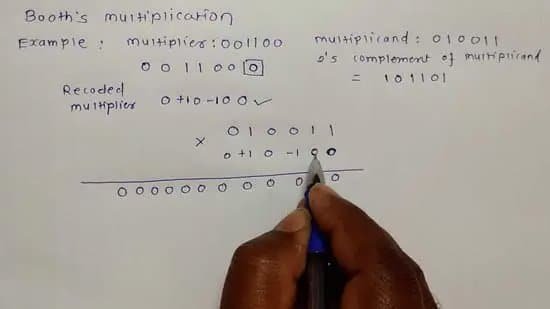 Booth's multiplication
Example : multiplier : 001100 multiplicand : 010011
0 0 1 1 0 0 0 2's complement of multiplicand
= 101101
Recoded multiplier 0 +1 0 -1 0 0 ✓
0 1 0 0 1 1
× 0 +1 0 -1 0 0
0 0 0 0 0 0 0 0 0 0 0